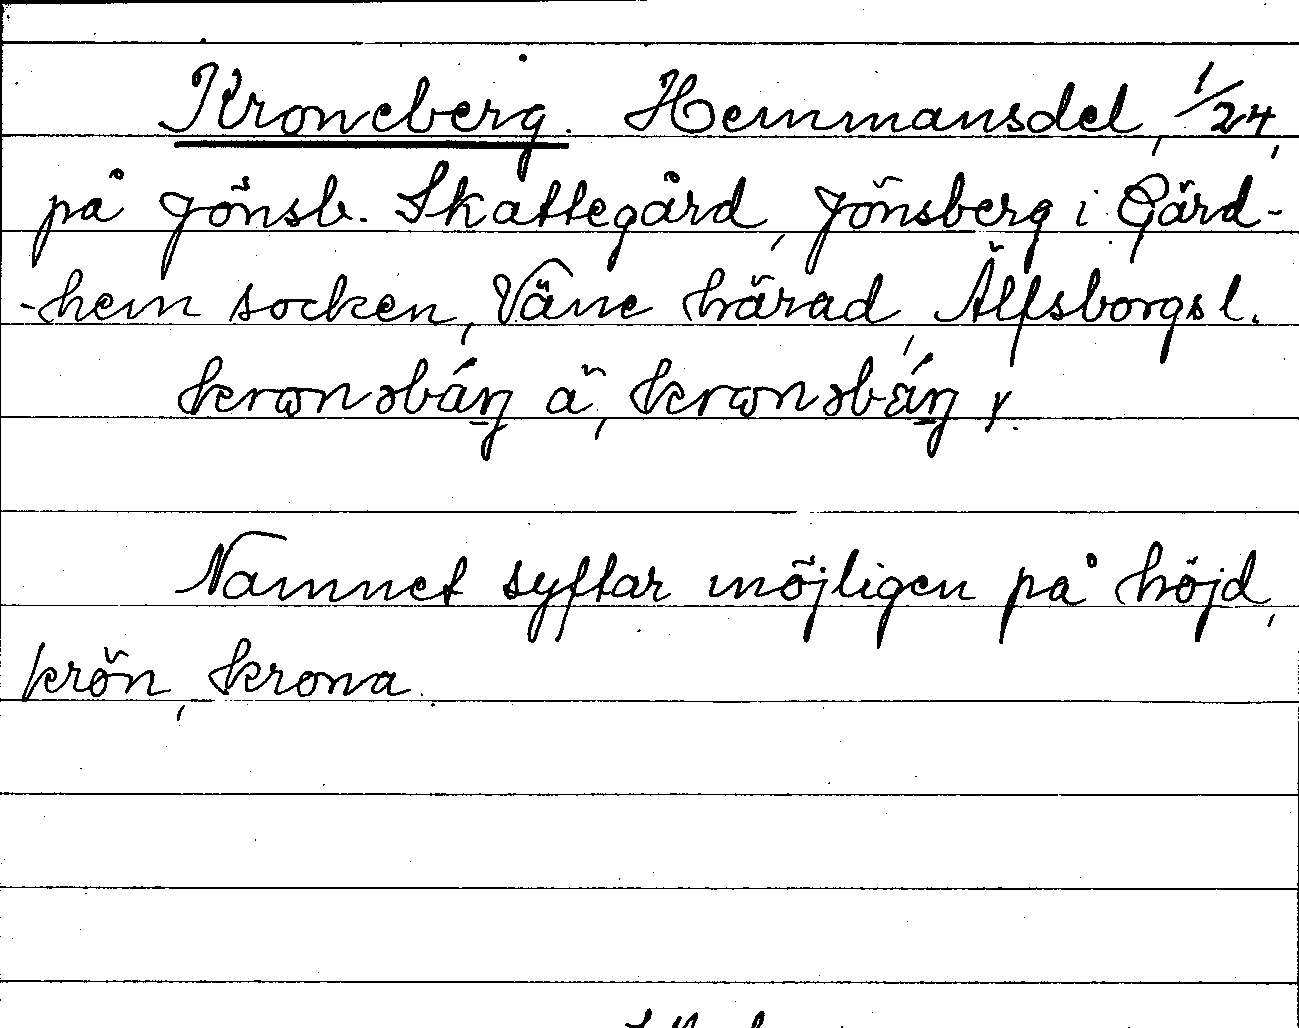 Kroneberg. Hemmansdel, 1/24,
på Jönsb. Skattegård, Jönsberg i Gärd-
-hem socken, Väne härad, Älfsborgs l.
krωnəbáŋ ä, krωnəbáŋ y.
Namnet syftar möjligen på höjd,
krön, krona.